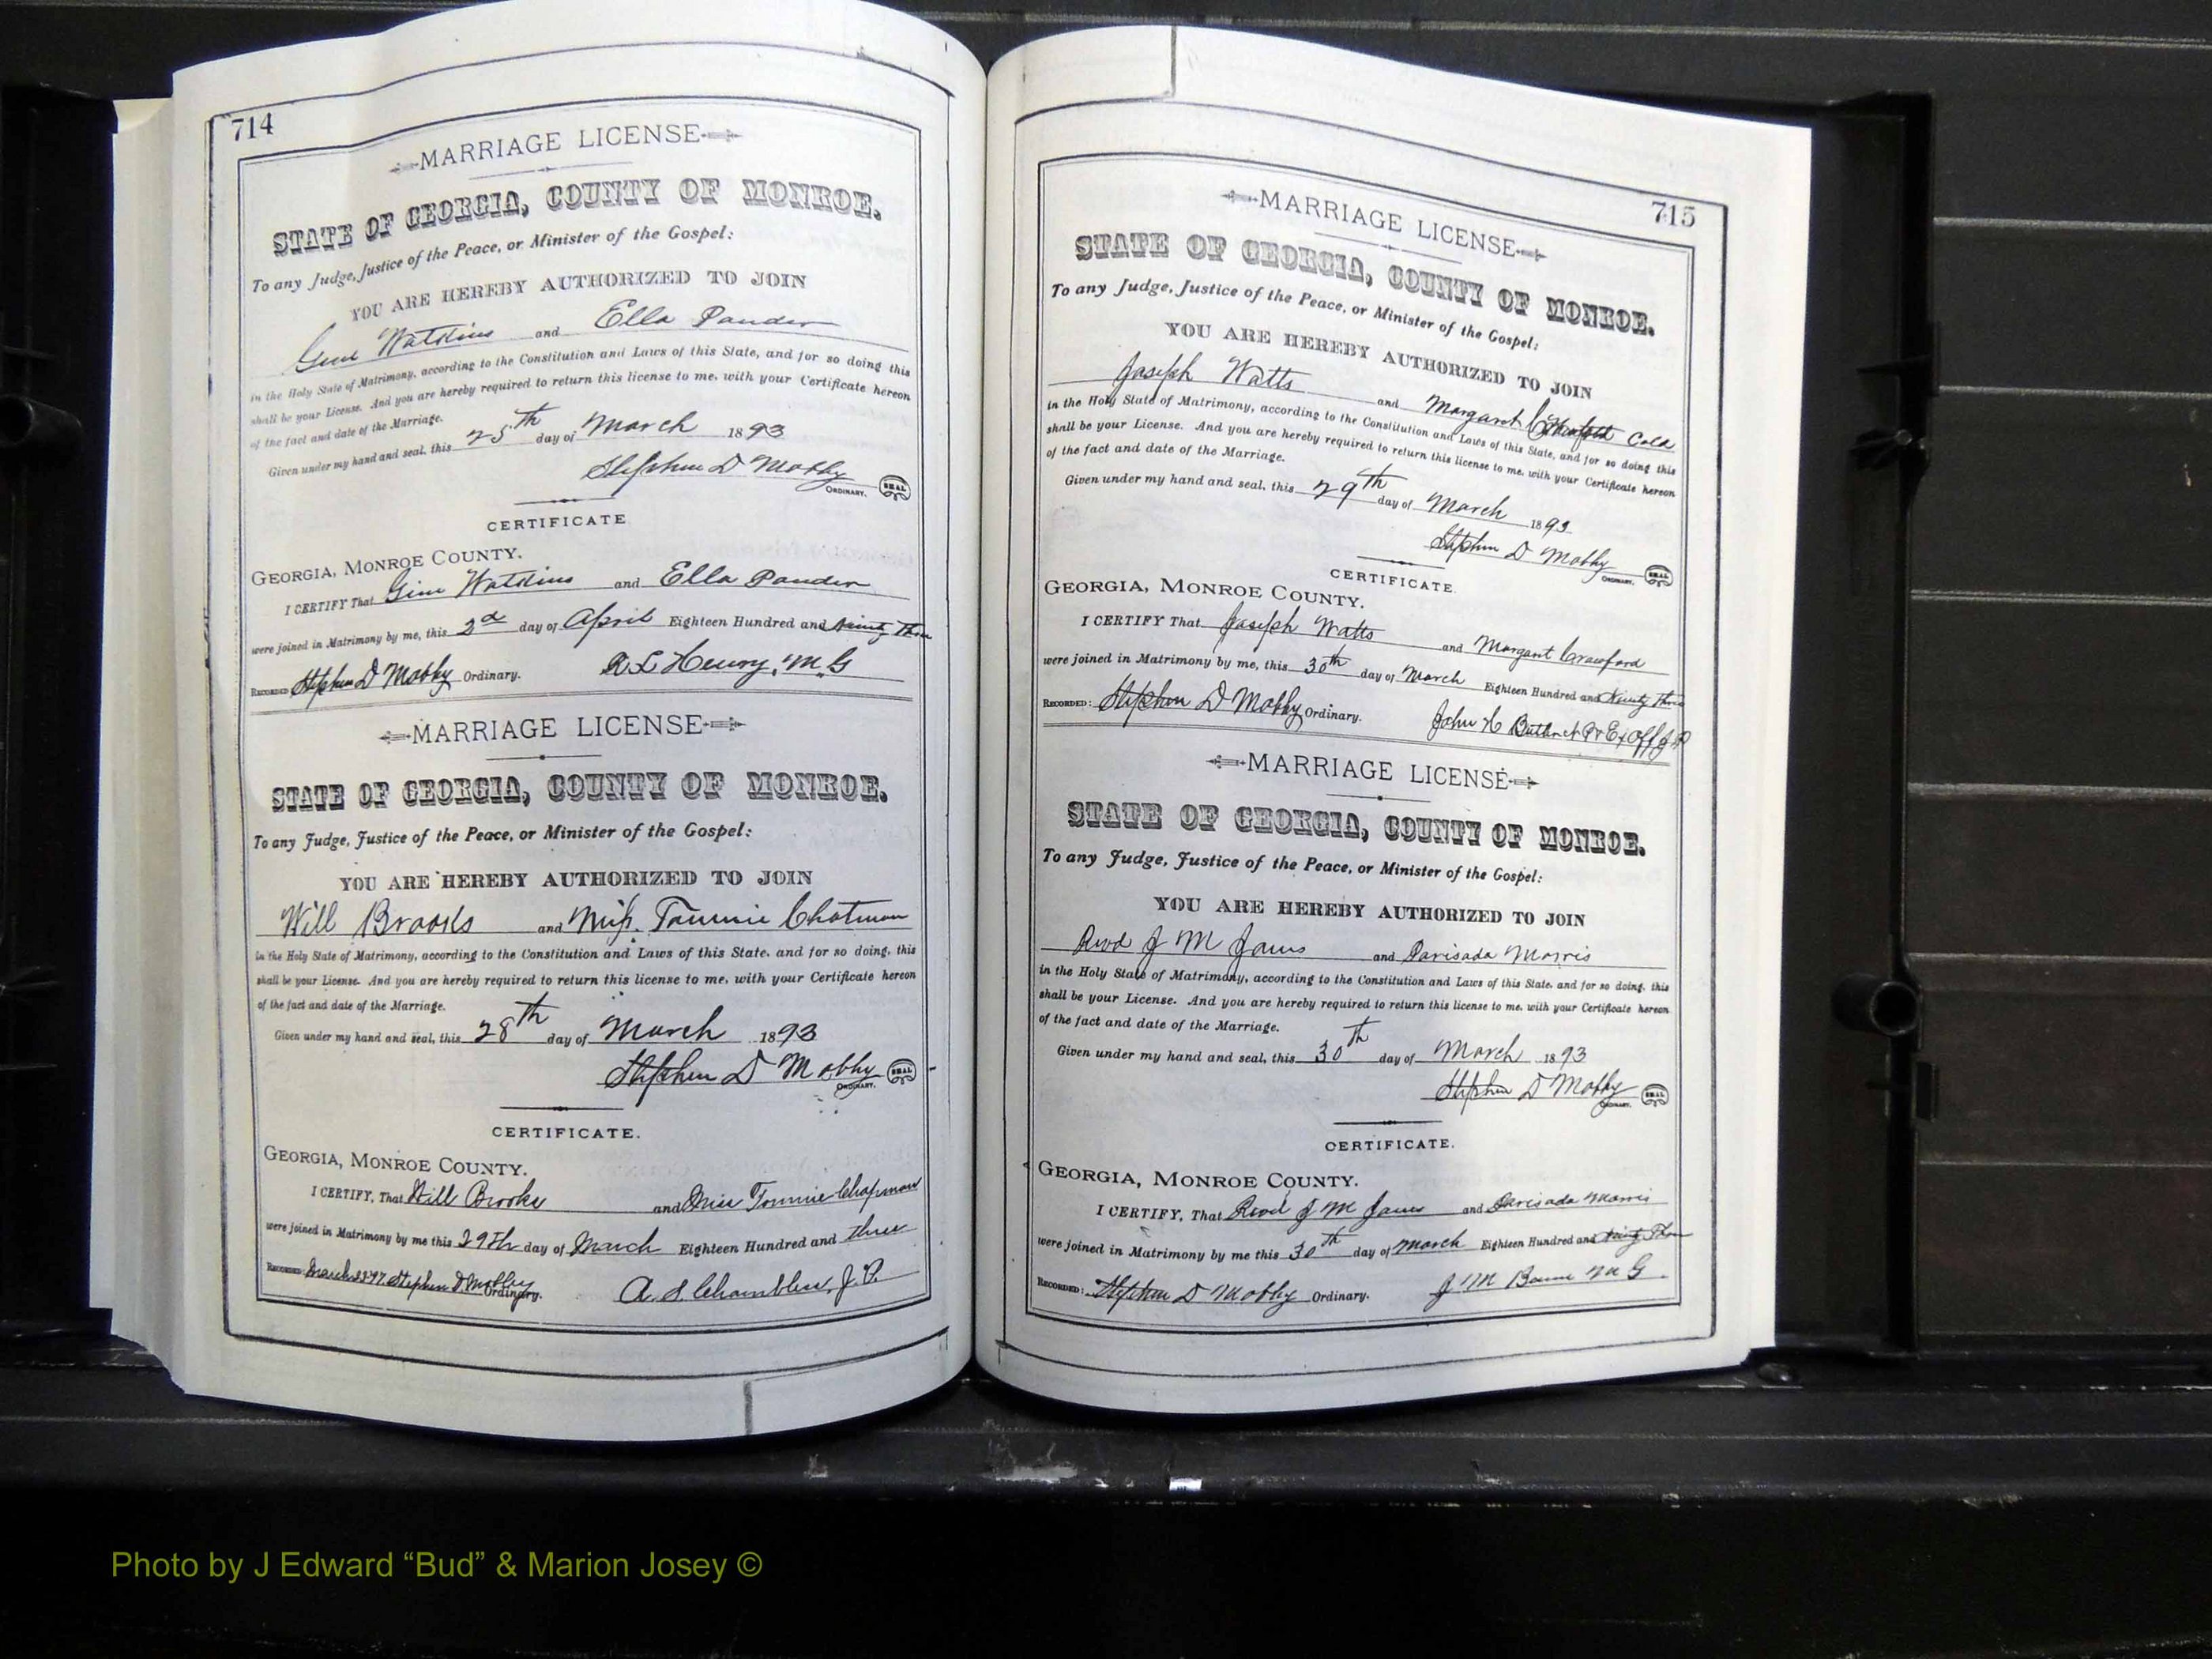 714
MARRIAGE LICENSE
STATE OF GEORGIA, COUNTY OF MONROE.
To any Judge, Justice of the Peace, or Minister of the Gospel:
YOU ARE HEREBY AUTHORIZED TO JOIN
Watkins and Ella Pander
in the Holy State of Matrimony, according to the Constitution and Laws of this State, and for so doing this
shall be your License. And you are hereby required to return this license to me, with your Certificate hereon
of the fact and date of the Marriage.
Given under my hand and seal, this 25th day of March 1893
Stephen D Mobley
ORDINARY. SEAL
CERTIFICATE
GEORGIA, MONROE COUNTY.
I CERTIFY That Watkins and Ella Pander
were joined in Matrimony by me, this 2d day of April Eighteen Hundred and Ninety Three
RECORDED Stephen D Mobley Ordinary. R L Henry, M.G
MARRIAGE LICENSE
STATE OF GEORGIA, COUNTY OF MONROE.
To any Judge, Justice of the Peace, or Minister of the Gospel:
YOU ARE HEREBY AUTHORIZED TO JOIN
Will Brooks and Miss. Tommie Chatman
in the Holy State of Matrimony, according to the Constitution and Laws of this State, and for so doing, this
shall be your License. And you are hereby required to return this license to me, with your Certificate hereon
of the fact and date of the Marriage.
Given under my hand and seal, this 28th day of March 1893
Stephen D Mobley
ORDINARY. SEAL
CERTIFICATE.
GEORGIA, MONROE COUNTY.
I CERTIFY, That Will Brooks and Miss Tommie Chapman
were joined in Matrimony by me this 29th day of March Eighteen Hundred and three
RECORDED: March Stephen D. Mobley Ordinary. A. S. Chambless, J. P.
715
MARRIAGE LICENSE
STATE OF GEORGIA, COUNTY OF MONROE.
To any Judge, Justice of the Peace, or Minister of the Gospel:
YOU ARE HEREBY AUTHORIZED TO JOIN
Joseph Watts and Margant Cold
in the Holy State of Matrimony, according to the Constitution and Laws of this State, and for so doing this
shall be your License. And you are hereby required to return this license to me, with your Certificate hereon
of the fact and date of the Marriage.
Given under my hand and seal, this 29th day of March 1893
Stephen D Mobley
ORDINARY. SEAL
CERTIFICATE.
GEORGIA, MONROE COUNTY.
I CERTIFY That Joseph Watts and Margant Crawford
were joined in Matrimony by me, this 30th day of March Eighteen Hundred and Ninety Three
RECORDED: Stephen D Mobley Ordinary. John H
MARRIAGE LICENSE
STATE OF GEORGIA, COUNTY OF MONROE.
To any Judge, Justice of the Peace, or Minister of the Gospel:
YOU ARE HEREBY AUTHORIZED TO JOIN
Revd J M Janes and Parisada Morris
in the Holy State of Matrimony, according to the Constitution and Laws of this State, and for so doing, this
shall be your License. And you are hereby required to return this license to me, with your Certificate hereon
of the fact and date of the Marriage.
Given under my hand and seal, this 30th day of March 1893
Stephen D Mobley
ORDINARY. SEAL
CERTIFICATE.
GEORGIA, MONROE COUNTY.
I CERTIFY, That Revd J M Janes and Parisada Morris
were joined in Matrimony by me this 30th day of March Eighteen Hundred and Ninety Three
RECORDED: Stephen D Mobley Ordinary. J M M G
Photo by J Edward “Bud” & Marion Josey ©